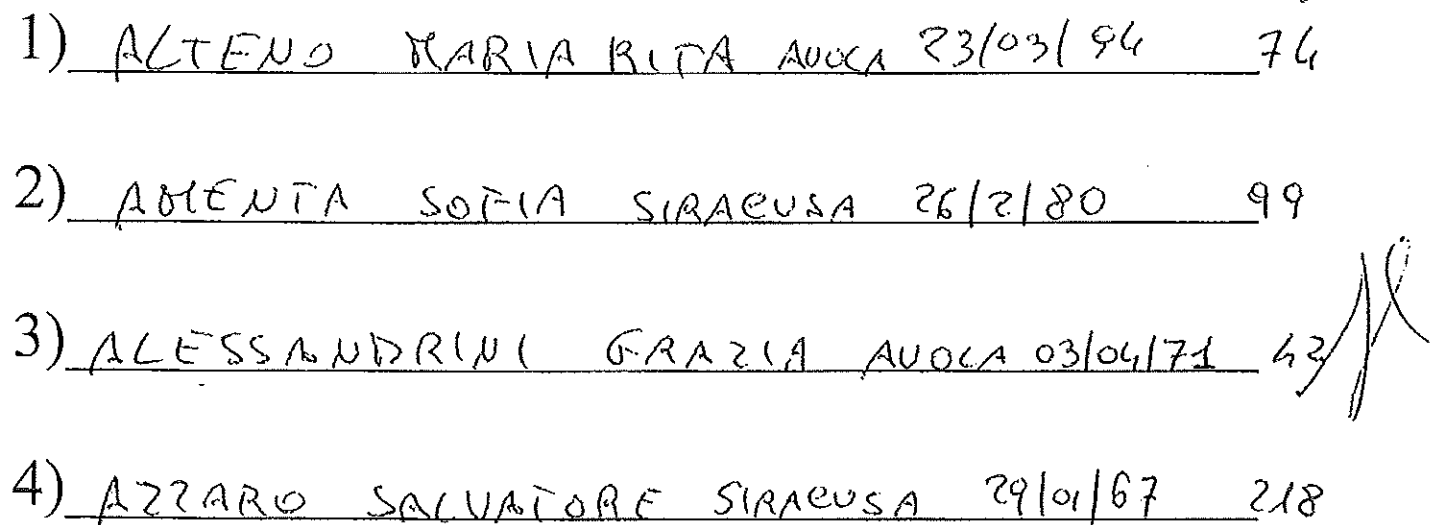 1) ALTENO MARIA RITA AVOLA 23/03/94 74
2) AMENTA SOFIA SIRACUSA 26/2/80 99
3) ALESSANDRINI GRAZIA AVOLA 03/04/71 42
4) AZZARO SALVATORE SIRACUSA 29/01/67 218